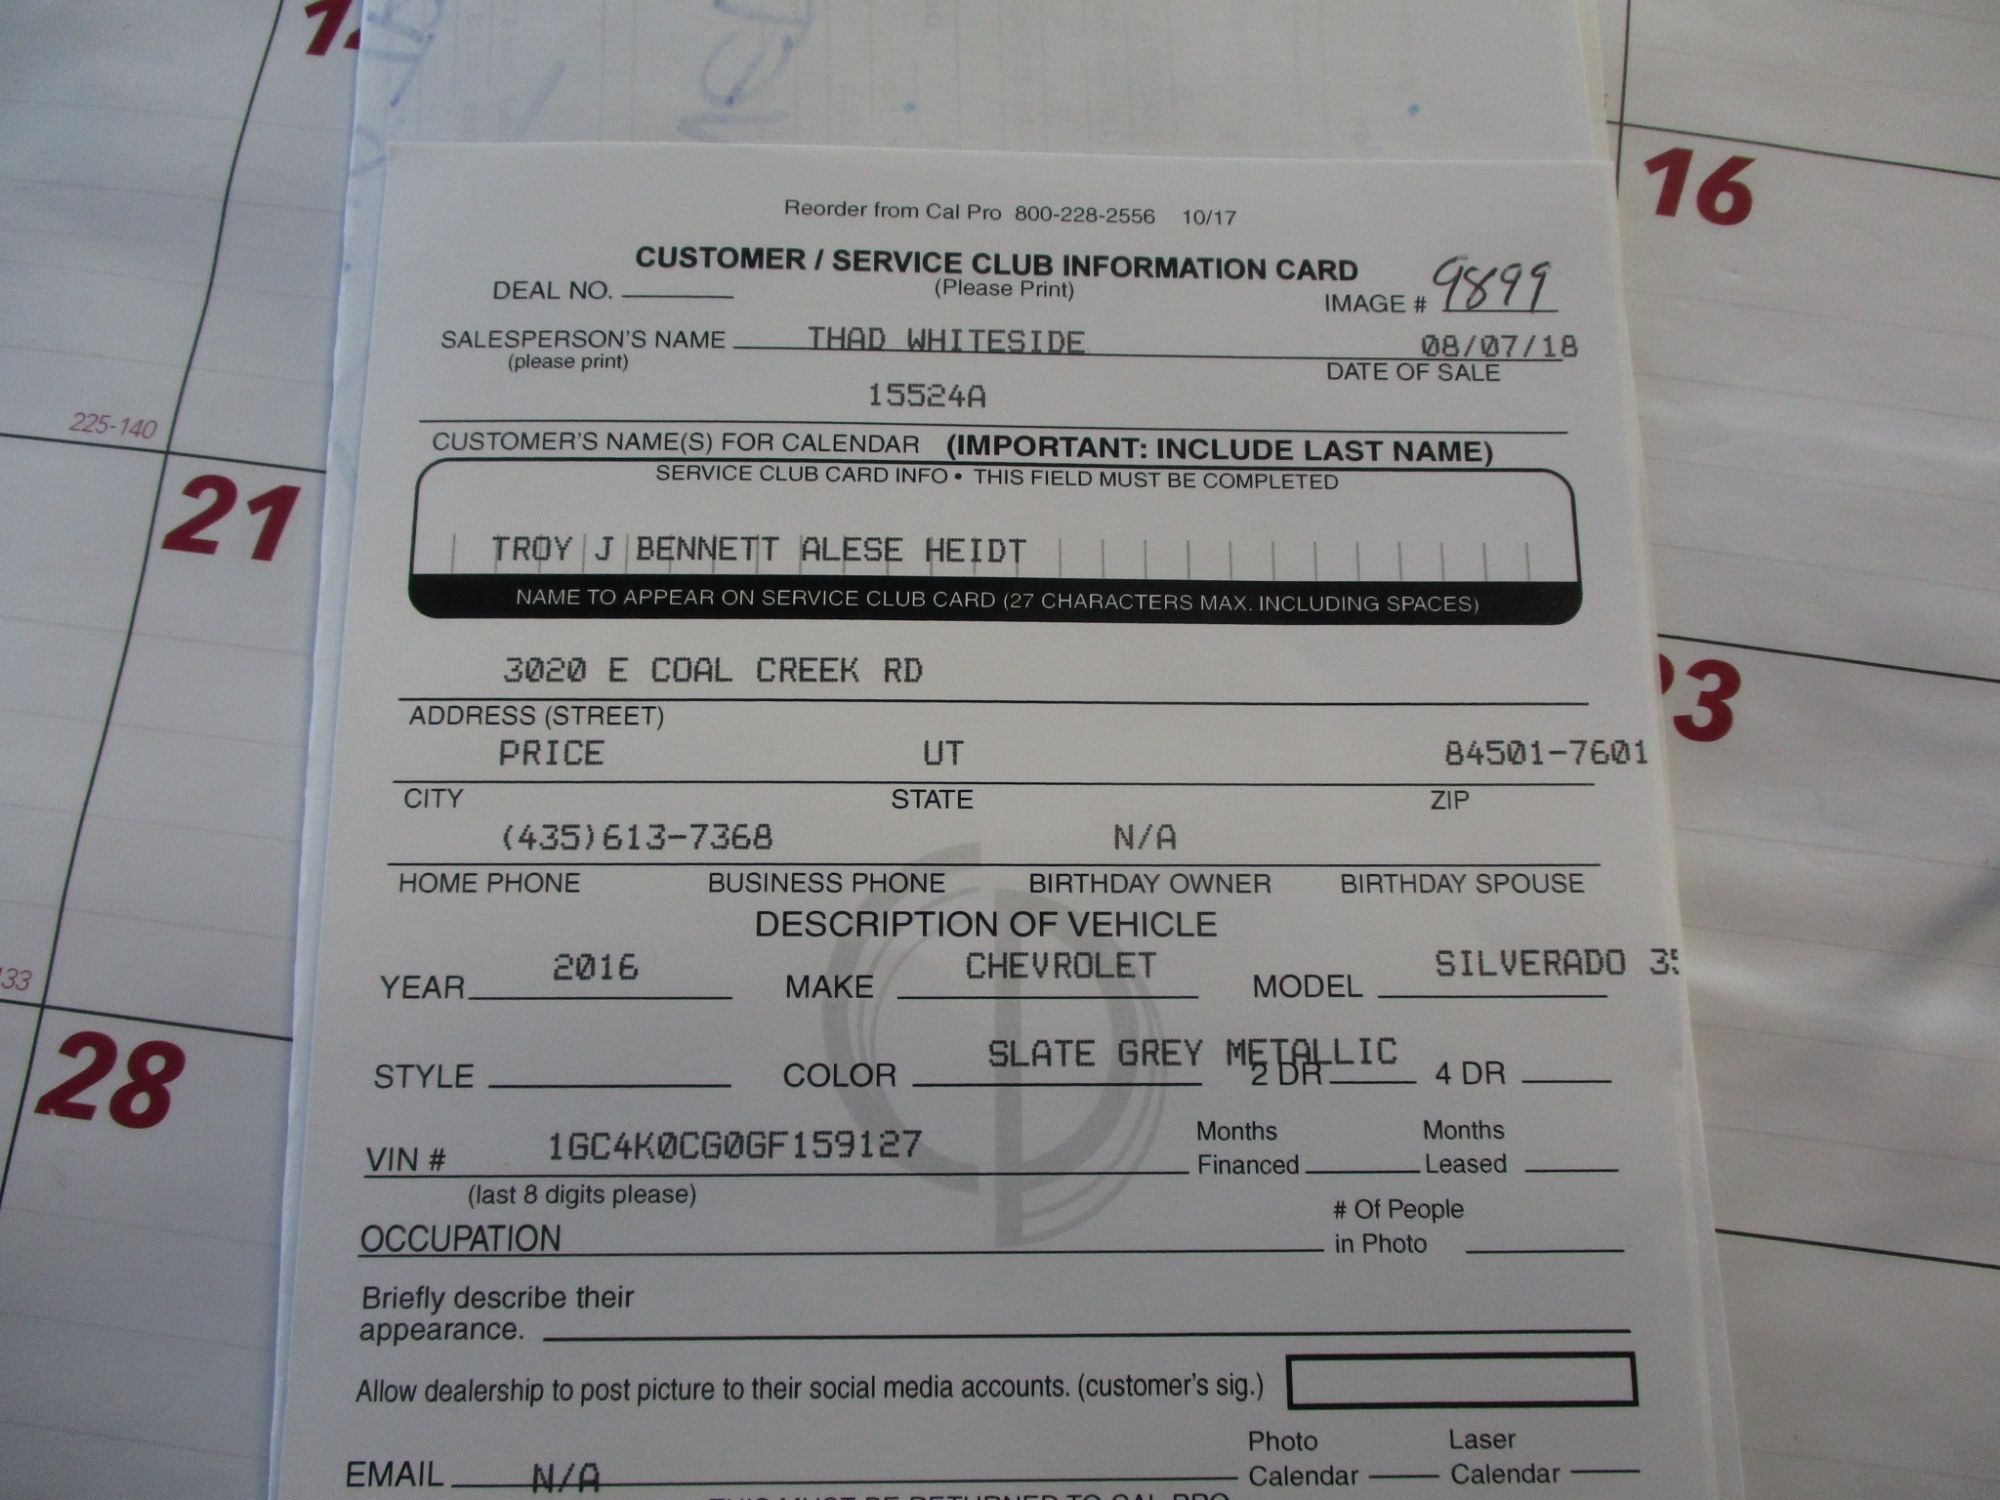 Reorder from Cal Pro 800-228-2556 10/17
CUSTOMER / SERVICE CLUB INFORMATION CARD
DEAL NO. (Please Print) IMAGE # 9899
SALESPERSON'S NAME THAD WHITESIDE 08/07/18
(please print) DATE OF SALE
15524A
CUSTOMER'S NAME(S) FOR CALENDAR (IMPORTANT: INCLUDE LAST NAME)
SERVICE CLUB CARD INFO • THIS FIELD MUST BE COMPLETED
TROY J BENNETT ALESE HEIDT
NAME TO APPEAR ON SERVICE CLUB CARD (27 CHARACTERS MAX. INCLUDING SPACES)
3020 E COAL CREEK RD
ADDRESS (STREET)
PRICE UT 84501-7601
CITY STATE ZIP
(435)613-7368 N/A
HOME PHONE BUSINESS PHONE BIRTHDAY OWNER BIRTHDAY SPOUSE
DESCRIPTION OF VEHICLE
YEAR 2016 MAKE CHEVROLET MODEL SILVERADO 35
STYLE COLOR SLATE GREY METALLIC 2 DR 4 DR
VIN # 1GC4K0CG0GF159127 Months Financed Months Leased
(last 8 digits please)
OCCUPATION # Of People in Photo
Briefly describe their
appearance.
Allow dealership to post picture to their social media accounts. (customer's sig.)
EMAIL N/A Photo Calendar Laser Calendar
16
225-140
21
28